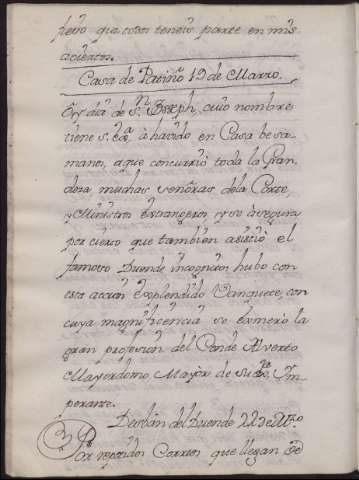 pero que estos teneis parte en mis
aciertos.
Casa de Patiño 19 de Marzo.
Oy dia de Sn. Joseph, cuio nombre
tiene s. exa. à havido en Casa besa-
manos, a que concurrió toda la Gran
deza muchas señoras dela Corte,
y Ministros extrangeros, y se asegura
por cierto que tambien asistió el
famoso Duende incognito, hubo con
esta accion explendido Vanquete, con
cuya magnificencia se esmeró la
gran profusion del Conde Alverto
Mayordomo Mayor de su Exa. Im-
perante.
Desban del Duende 22 de Mzo
Por repetidos Correos que llegan de